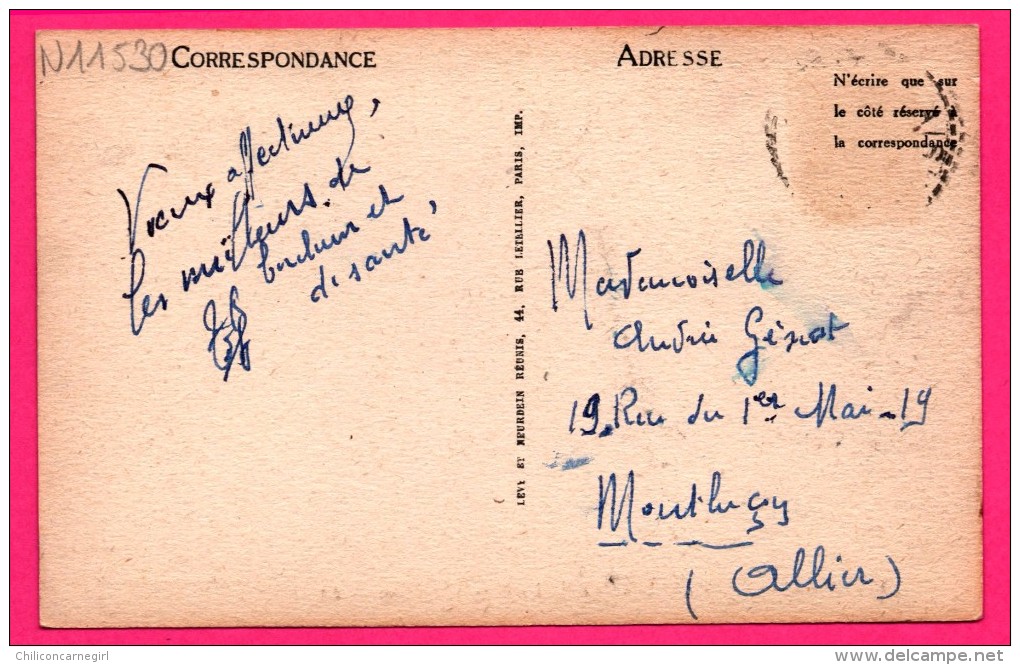 N11530
CORRESPONDANCE
ADRESSE
N'écrire que sur
le côté réservé à
la correspondance
Vœux affectueux,
les meilleurs de
bonheur et
de santé,
LEVY ET NEURDEIN RÉUNIS, 44, RUE LETELLIER, PARIS, IMP.
Mademoiselle
Andrée
19, Rue du 1er Mai - 19
Montluçon
(Allier)
Chiliconcarnegirl
http://www.delcampe.net